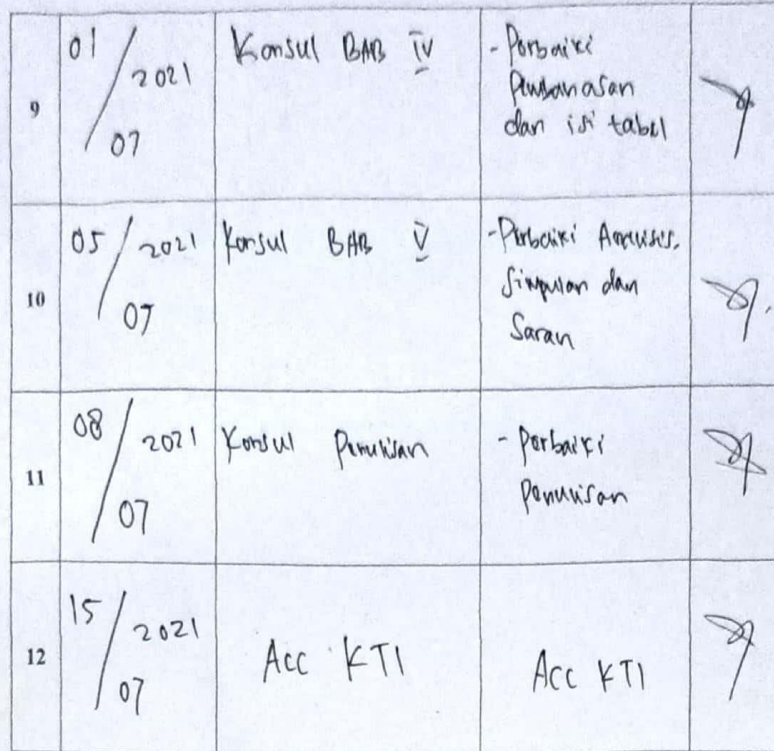 9
01 / 2021
07
Konsul BAB IV
- Perbaiki
Pembahasan
dan isi tabel
10
05 / 2021
07
Konsul BAB V
- Perbaiki Analisis,
Simpulan dan
Saran
11
08 / 2021
07
Konsul Penulisan
- Perbaiki
Penulisan
12
15 / 2021
07
Acc KTI
Acc KTI